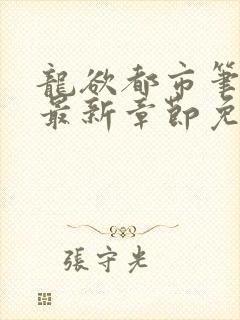 龍欲都市筆
最新章節免
張守光